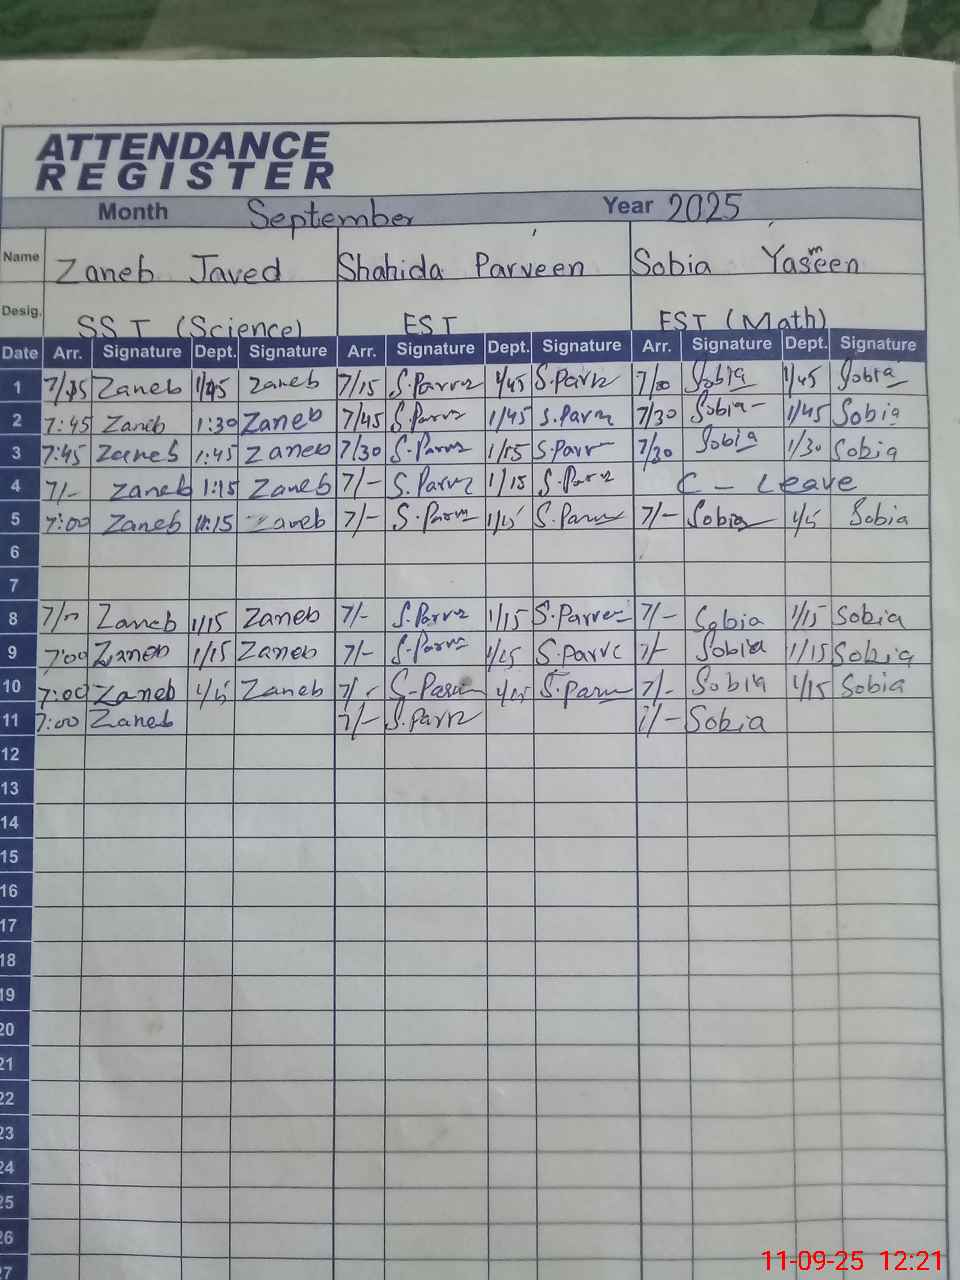 ATTENDANCE
REGISTER
Month September Year 2025
Name Zaneb Javed Shahida Parveen Sobia Yasmeen
Desig. SST (Science) EST EST (Math)
Date Arr. Signature Dept. Signature Arr. Signature Dept. Signature Arr. Signature Dept. Signature
1 Zaneb 1/45 Zaneb 7/15 1/45 Sobia 1/45 Sobia
2 7:45 Zaneb 1:30 Zaneb 7/45 1/45 7/30 Sobia 1/45 Sobia
3 7:45 Zaneb 1:45 Zaneb 7/30 1/15 7/30 Sobia 1/30 Sobia
4 7/- Zaneb 1:15 Zaneb 7/- 1/15 C - Leave
5 7:00 Zaneb Zaneb 7/- 7/- Sobia Sobia
6
7
8 Zaneb 1/15 Zaneb 7/- 1/15 7/- Sobia 1/15 Sobia
9 7:00 Zaneb 1/15 Zaneb 7/- 7/- Sobia 1/15 Sobia
10 7:00 Zaneb Zaneb 7/- 7/- Sobia 1/15 Sobia
11 7:00 Zaneb 7/- 7/- Sobia
12
13
14
15
16
17
18
19
20
21
22
23
24
25
26
27
11-09-25 12:21